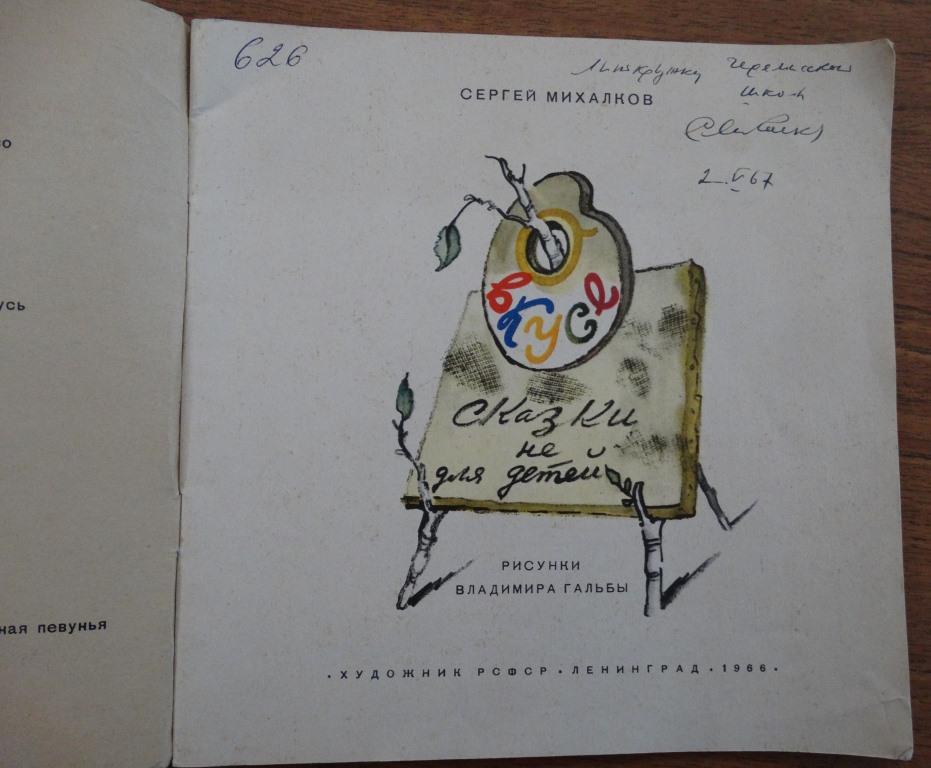 со
усь
ная певунья
626
Литкружку
школы
2.V.67
СЕРГЕЙ МИХАЛКОВ
в кусе
сказки
не
для детей
РИСУНКИ
ВЛАДИМИРА ГАЛЬБЫ
• ХУДОЖНИК РСФСР • ЛЕНИНГРАД • 1966 •